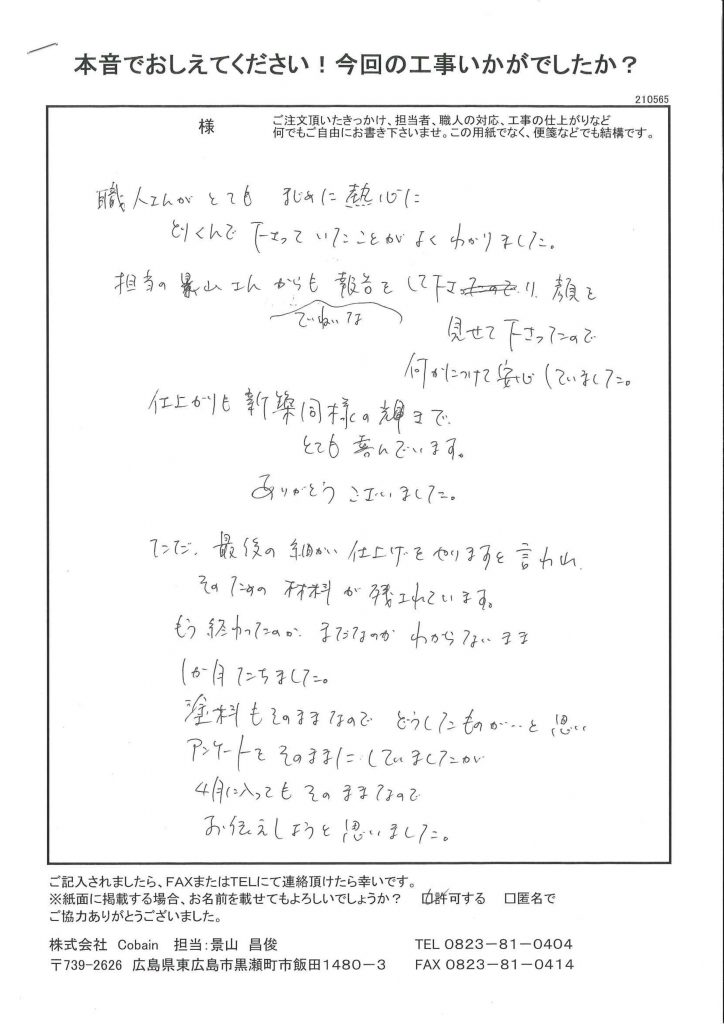 本音でおしえてください！今回の工事いかがでしたか？
210565
様
ご注文頂いたきっかけ、担当者、職人の対応、工事の仕上がりなど
何でもご自由にお書き下さいませ。この用紙でなく、便箋などでも結構です。
職人さんがとても まじめに熱心に
とりくんで下さっていたことがよくわかりました。
担当の景山さんからも報告をして下さり、顔を
ていねいな
見せて下さったので
何かにつけて安心していました。
仕上がりも新築同様の輝きで、
とても喜んでいます。
ありがとうございました。
ただ、最後の細かい仕上げをやりますと言われ、
そのための材料が残されています。
もう終わったのか、まだなのかわからないまま
1か月たちました。
塗料もそのままなので どうしたものか…と思い
アンケートをそのままにしていましたが
4月に入ってもそのままなので
お伝えしようと思いました。
ご記入されましたら、FAXまたはTELにて連絡頂けたら幸いです。
※紙面に掲載する場合、お名前を載せてもよろしいでしょうか？ ☑許可する □匿名で
ご協力ありがとうございました。
株式会社 Cobain 担当：景山 昌俊 TEL 0823－81－0404
〒739-2626 広島県東広島市黒瀬町市飯田1480－3 FAX 0823－81－0414